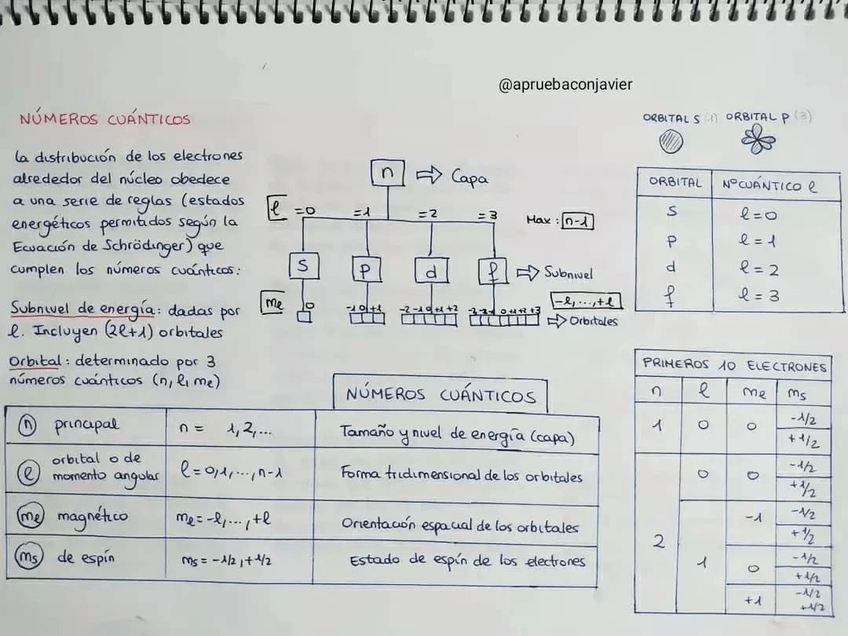 @apruebaconjavier
NÚMEROS CUÁNTICOS
La distribución de los electrones
alrededor del núcleo obedece
a una serie de reglas (estados
energéticos permitidos según la
Ecuación de Schrödinger) que
cumplen los números cuánticos:
Subnivel de energía: dadas por
l. Incluyen (2l+1) orbitales
Orbital: determinado por 3
números cuánticos (n, l, ml)
n ⇒ Capa
l =0 =1 =2 =3 Max: n-1
s p d f ⇒ Subnivel
ml 0 -1 0 +1 -2 -1 0 +1 +2 -3 -2 -1 0 +1 +2 +3 -l,...,+l
⇒ Orbitales
ORBITAL S (1) ORBITAL P (3)
ORBITAL Nº CUÁNTICO l
s l = 0
p l = 1
d l = 2
f l = 3
NÚMEROS CUÁNTICOS
n principal n = 1,2,... Tamaño y nivel de energía (capa)
l orbital o de momento angular l = 0,1,...,n-1 Forma tridimensional de los orbitales
ml magnético ml = -l,...,+l Orientación espacial de los orbitales
ms de espín ms = -1/2, +1/2 Estado de espín de los electrones
PRIMEROS 10 ELECTRONES
n l ml ms
1 0 0 -1/2
+1/2
2 0 0 -1/2
+1/2
1 -1 -1/2
+1/2
0 -1/2
+1/2
+1 -1/2
+1/2